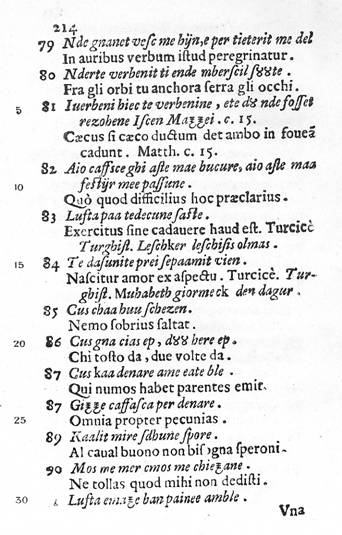 214
79 Nde gnanet vesc me hijn, e per tieterit me del
In auribus verbum istud peregrinatur.
80 Nderte verbenit ti ende mberscil sȣȣte.
Fra gli orbi tu anchora serra gli occhi.
5 81 Iuerbeni biec te verbenine, ete dȣ nde fosset
rezohene Iscen Mazzei. c. 15.
Cæcus si cæco ductum det ambo in foueã
cadunt. Matth. c. 15.
82 Aio caffsce ghi aste mae bucure, aio aste maa
10 festijr mee passune.
Quò quod difficilius hoc præclarius.
83 Lufta paa tedecune safte.
Exercitus sine cadauere haud est. Turcicè
Turghist. Leschker leschisis olmas.
15 84 Te dasunite prei sepaamit vien.
Nascitur amor ex aspectu. Turcicè. Tur-
ghist. Muhabeth giormeck den dagur.
85 Cus chaa buu schezen.
Nemo sobrius saltat.
20 86 Cus gna cias ep, dȣȣ here ep.
Chi tosto da, due volte da.
87 Cus kaa denare ame eate ble.
Qui numos habet parentes emit.
87 Gizze caffasca per denare.
25 Omnia propter pecunias.
89 Kaalit mire sdhune spore.
Al caual buono non bisogna speroni.
90 Mos me mer cmos me chiezane.
Ne tollas quod mihi non dedisti.
30 Lufta emaze ban painee amble.
Vna